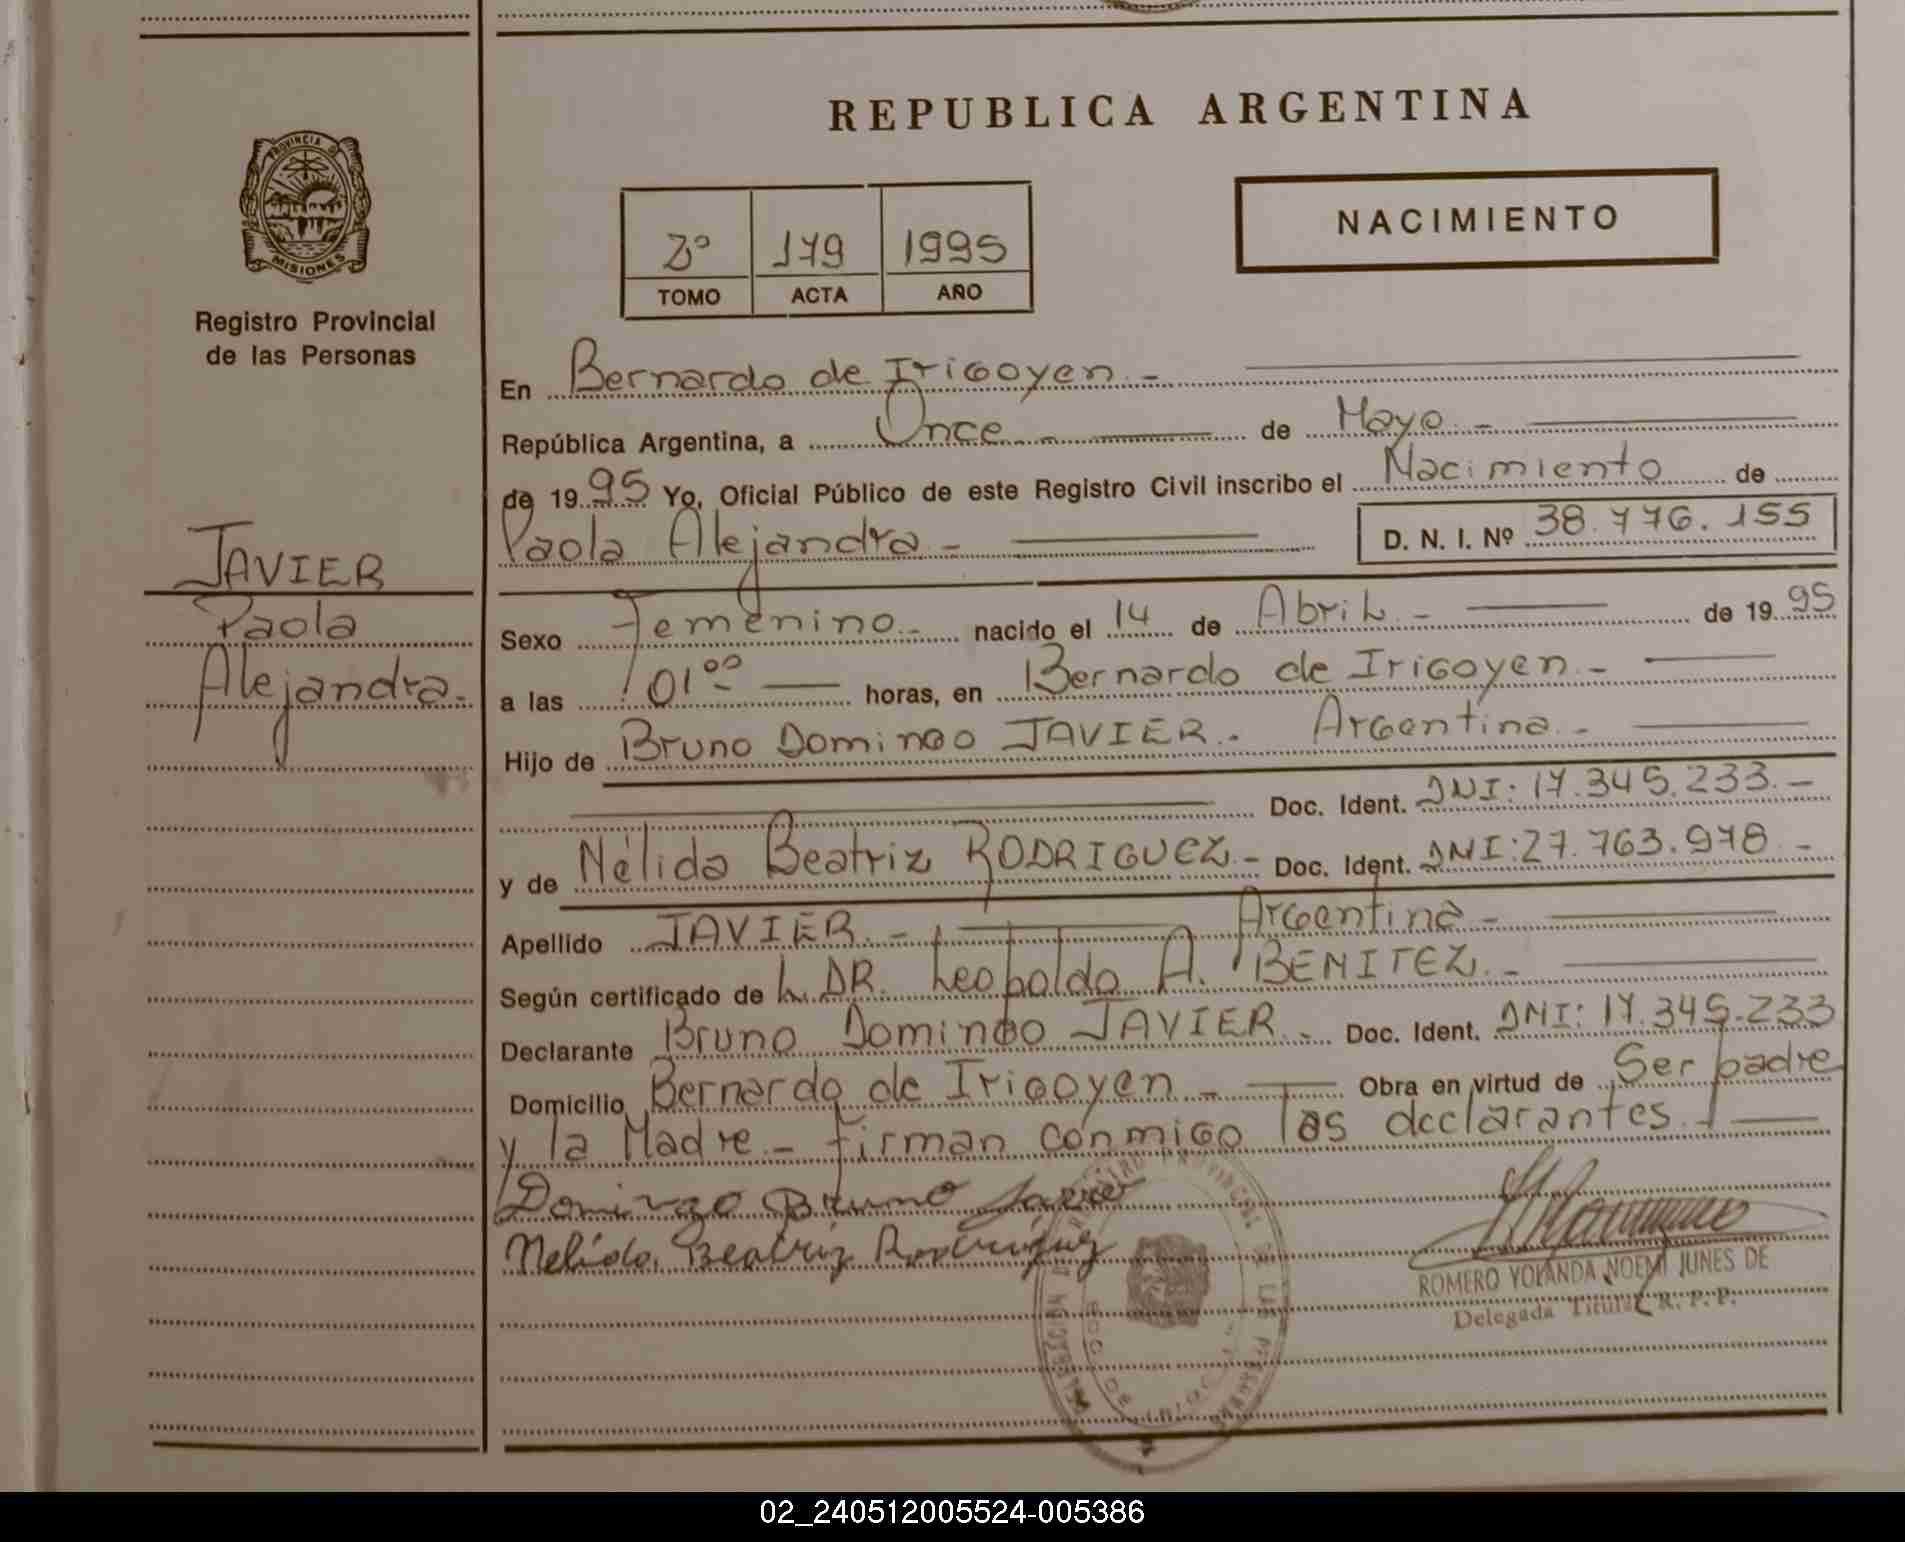 REPUBLICA ARGENTINA
PROVINCIA D
MISIONES
Registro Provincial
de las Personas
NACIMIENTO
179 1995
TOMO ACTA AÑO
En Bernardo de Irigoyen.-
República Argentina, a Once.- de Mayo.-
de 1995 Yo, Oficial Público de este Registro Civil inscribo el Nacimiento de
Paola Alejandra.- D. N. I. Nº 38.776.155
JAVIER
Paola
Alejandra.
Sexo Femenino.- nacido el 14 de Abril.- de 1995
a las 01⁰⁰ horas, en Bernardo de Irigoyen.-
Hijo de Bruno Domingo JAVIER.- Argentina.-
Doc. Ident. DNI: 17.345.233.-
y de Nélida Beatriz RODRIGUEZ.- Doc. Ident. DNI: 27.763.978.-
Apellido JAVIER.- Argentina.-
Según certificado de DR. Leopoldo A. BENITEZ.-
Declarante Bruno Domingo JAVIER.- Doc. Ident. DNI: 17.345.233
Domicilio Bernardo de Irigoyen.- Obra en virtud de Ser padre
y la Madre.- firman conmigo los declarantes.-
Domingo Bruno Javier
Nelida Beatriz Rodriguez
ROMERO YOLANDA NOEMI JUNES DE
Delegada Titular R. P. P.
REGISTRO PROVINCIAL DE LAS PERSONAS
02_240512005524-005386